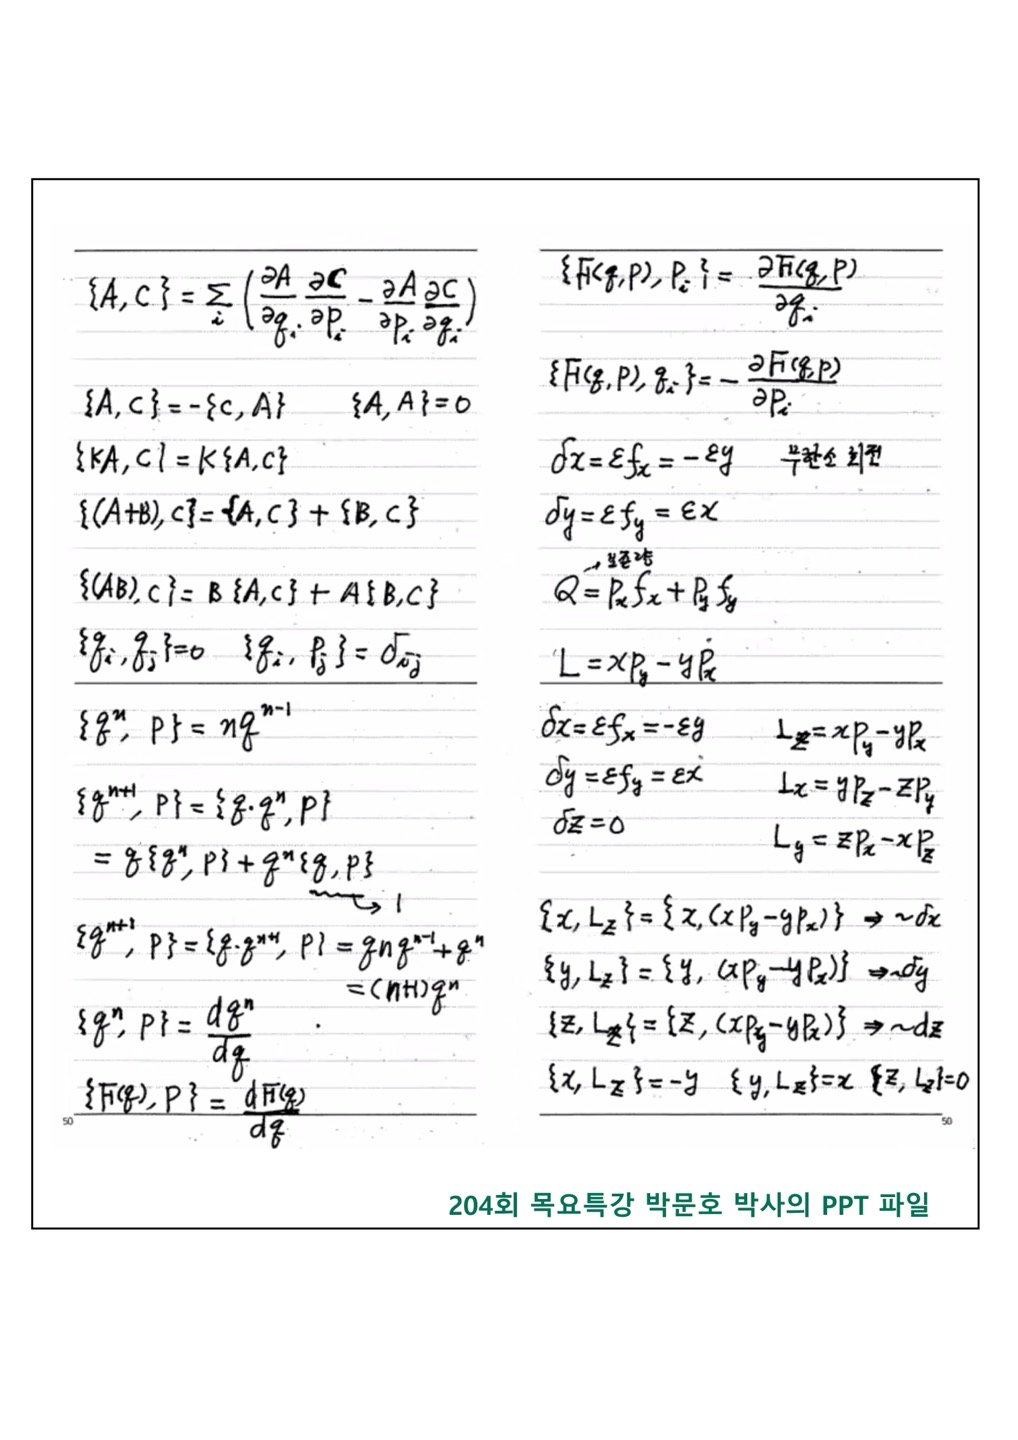 {A, C} = Σ_i (∂A/∂q_i ∂C/∂p_i − ∂A/∂p_i ∂C/∂q_i)
{A, C} = -{C, A}   {A, A} = 0
{KA, C} = K{A, C}
{(A+B), C} = {A, C} + {B, C}
{(AB), C} = B{A, C} + A{B, C}
{q_i, q_j} = 0   {q_i, p_j} = δ_ij
{q^n, p} = nq^{n-1}
{q^{n+1}, p} = {q·q^n, p}
= q{q^n, p} + q^n{q, p}
→ 1
{q^{n+1}, p} = {q·q^{n+1}, p} = qnq^{n-1} + q^n
= (n+1)q^n
{q^n, p} = dq^n/dq
{F(q), p} = dF(q)/dq
50
{F(q,p), p_i} = ∂F(q,p)/∂q_i
{F(q,p), q_i} = − ∂F(q,p)/∂p_i
δx = εf_x = −εy   무한소 회전
δy = εf_y = εx
→ 보존량
Q = p_x f_x + p_y f_y
L = xp_y − yp_x
δx = εf_x = −εy   L_z = xp_y − yp_x
δy = εf_y = εx   L_x = yp_z − zp_y
δz = 0   L_y = zp_x − xp_z
{x, L_z} = {x, (xp_y − yp_x)} ⇒ ~δx
{y, L_z} = {y, (xp_y − yp_x)} ⇒ ~δy
{z, L_z} = {z, (xp_y − yp_x)} ⇒ ~dz
{x, L_z} = −y   {y, L_z} = x   {z, L_z} = 0
50
204회 목요특강 박문호 박사의 PPT 파일